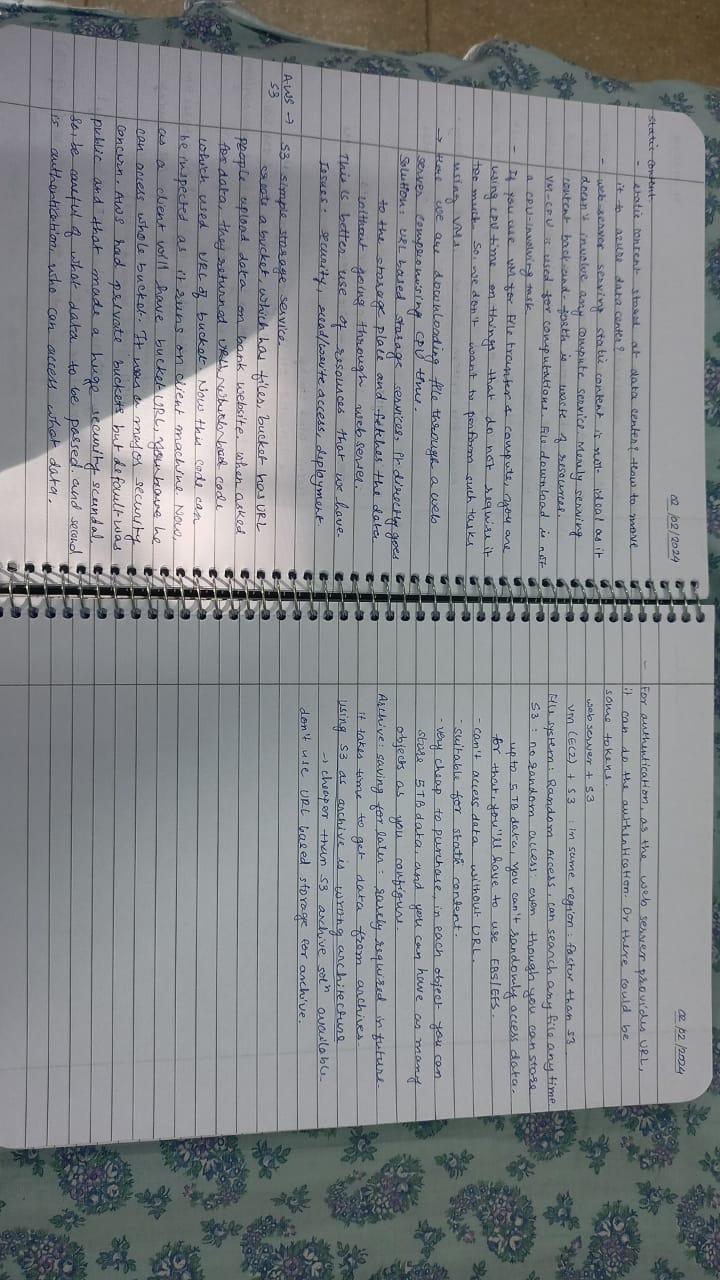 02/02/2024
Static content
- static content stored at data center? How to move
it to azure data center?
- web server serving static content is not ideal as it
doesn't involve any compute service. Merely serving
content back and forth is waste of resources.
VM-CPU is used for computations. File download is not
a CPU-involving task
- If you use VM for file transfer & compute, you are
using CPU time on things that do not require it
too much. So, we don't want to perform such tasks
using VMs
→ Here we are downloading file through a web
server compromising CPU time.
Solution: URL based storage services. It directly goes
to the storage place and fetches the data
without going through web server.
This is better use of resources that we have
Issues: security, read/write access, deployment
AWS → S3: simple storage service
S3
create a bucket, which has files, bucket has URL
People upload data on bank website. when asked
for data, they returned URLs, which had code
which used URL of bucket. Now this code can
be inspected as it runs on client machine. Now,
as a client will have bucket URL, you
can access whole bucket. It was a major security
concern. AWS had private buckets but default was
public and that made a huge security scandal
So, be careful of what data to be passed and second
is authentication, who can access what data.
02/02/2024
- For authentication, as the web server provides URL,
it can do the authentication. Or there could be
some tokens.
web server + S3
VM (EC2) + S3 : in same region : faster than S3
File system: Random Access, can search any file any time.
S3 : no random access. even though you can store
up to 5 TB data, you can't randomly access data,
for that, you'll have to use EBS/EFS.
- can't access data without URL
- suitable for static content.
- very cheap to purchase, in each object you can
store 5TB data, and you can have as many
objects as you configure.
Archive: saving for later : rarely required in future.
It takes time to get data from archives.
Using S3 as archive is wrong architecture
→ cheaper than S3 archive solⁿ available.
don't use URL based storage for archive.